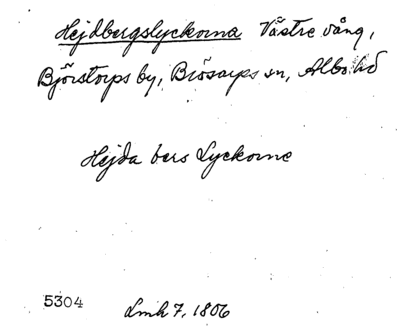 Hejdbergslyckorna Västre vång,
Björstorps by, Brösarps sn, Albo hd
Hejda bers Lyckorne
5304 Lmh 7, 1806